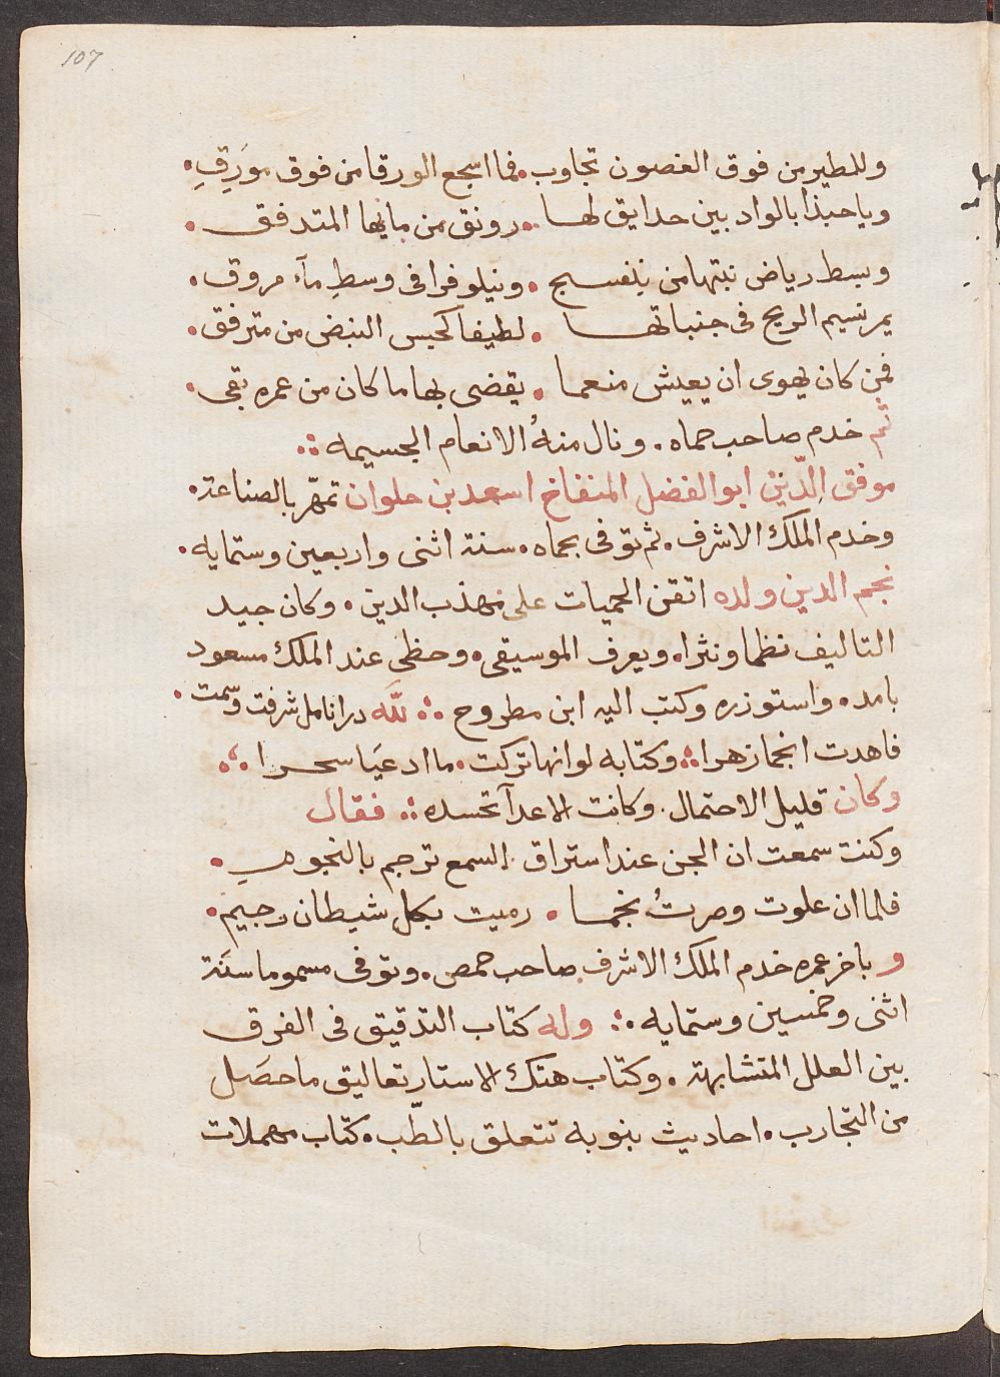 107
وللطير من فوق الغصون تجاوب • فما اسجع الورقا من فوق مورَقِ •
ويا حبذا بالواد بين حدايق لها • رونق من مايها المتدفق •
وبسط رياض نبتها من بنفسج • ونيلوفرا فى وسطِ مآء مروق •
يمر نسيم الريح فى جنباتها • لطيفا كجس النبض من مترفق •
فمن كان يهوى ان يعيش منعما • يقضى بها ما كان من عمره بقى •
ثم خدم صاحب حماه • ونال منهُ الانعام الجسيمه ⁖
موفق الدّين ابو الفضل المنفاخ اسعد بن حلوان تمهّر بالصناعة •
وخدم الملك الاشرف • ثم توفى بحماه • سنة اثنى واربعين وستمايه •
نجم الدين ولده اتقن الحميات على مهذب الدين • وكان جيد
التاليف نظما ونثرا • ويعرف الموسيقى • وحظى عند الملك مسعود
بامد • واستوزره وكتب اليه ابن مطروح ⁖ للّه در انامل شرفت وسمت •
فاهدت انجما زهرا ⁖ وكتابه لو انها تركت • ما ادعيَا سحرا ⁖
وكان قليل الاحتمال • وكانت الاعدآ تحسده ⁖ فقال
وكنت سمعت ان الجن عند استراق السمع ترجم بالنجوم •
فلما ان علوت وصرتُ نجما • رميت بكل شيطان رجيم •
و باخر عمره خدم الملك الاشرف صاحب حمص • وتوفى مسموما سنة
اثنى وخمسين وستمايه ⁖ وله كتاب التدقيق فى الفرق
بين العلل المتشابهة • وكتاب هتك الاستار تعاليق ما حصَل
من التجارب • احاديث نبويه تتعلق بالطّب • كتاب مهملات